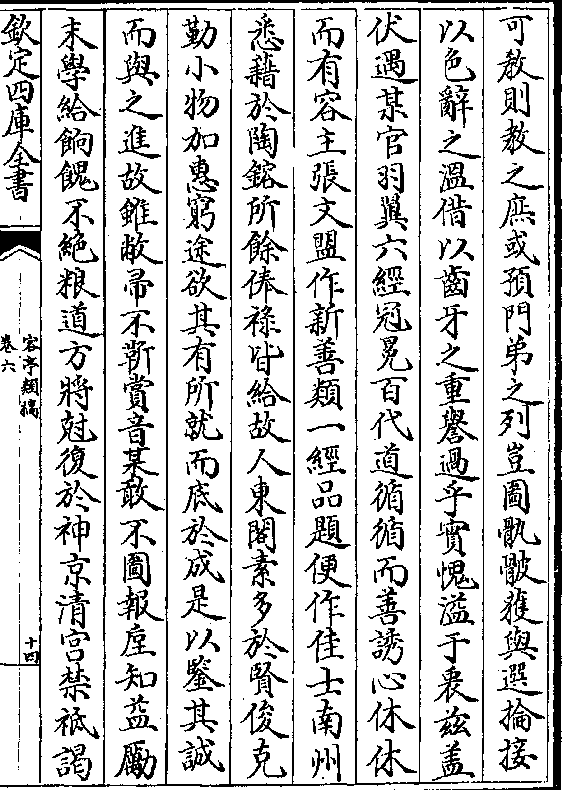 可教則教之庶或預門弟之列豈圖骫骳獲與選掄接
以色辭之溫借以齒牙之重譽過乎實愧溢于衷茲盖
伏遇某官羽翼六經冠冕百代道循循而善誘心休休
而有容主張文盟作新善類一經品題便作佳士南州
悉藉於陶鎔所餘俸祿皆給故人東閣素多於賢俊克
勤小物加惠窮途欲其有所就而底於成是以鑒其誠
而與之進故雖敝帚不靳賞音某敢不圖報座知益勵
末學給餉餽不絶粮道方將尅復於神京清宫禁祗謁
欽定四庫全書
客亭類稿
卷六
十四